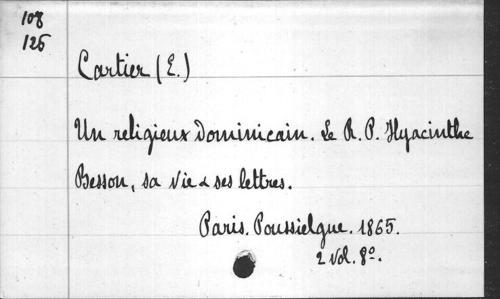 108
125
Cartier (E.)
Un religieux Dominicain. Le R. P. Hyacinthe
Besson, sa vie & ses lettres.
Paris. Poussielgue. 1865.
2 vol. 8º.